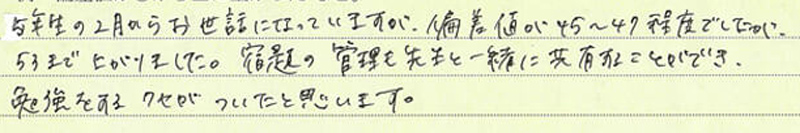 5年生の2月からお世話になっていますが、偏差値が45～47程度でしたが、
53まで上がりました。宿題の管理も先生と一緒に共有することができ、
勉強をするクセがついたと思います。